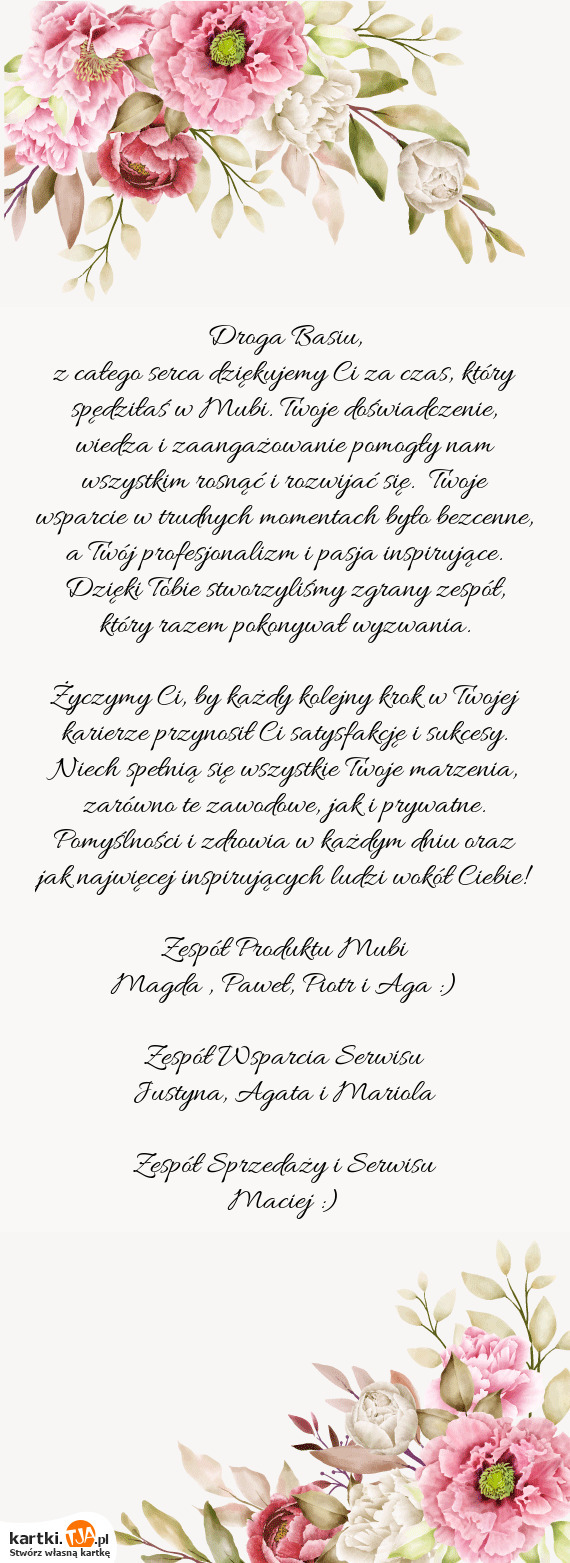 Droga Basiu,
z całego serca dziękujemy Ci za czas, który
spędziłaś w Mubi. Twoje doświadczenie,
wiedza i zaangażowanie pomogły nam
wszystkim rosnąć i rozwijać się. Twoje
wsparcie w trudnych momentach było bezcenne,
a Twój profesjonalizm i pasja inspirujące.
Dzięki Tobie stworzyliśmy zgrany zespół,
który razem pokonywał wyzwania.
Życzymy Ci, by każdy kolejny krok w Twojej
karierze przynosił Ci satysfakcję i sukcesy.
Niech spełnią się wszystkie Twoje marzenia,
zarówno te zawodowe, jak i prywatne.
Pomyślności i zdrowia w każdym dniu oraz
jak najwięcej inspirujących ludzi wokół Ciebie!
Zespół Produktu Mubi
Magda , Paweł, Piotr i Aga :)
Zespół Wsparcia Serwisu
Justyna, Agata i Mariola
Zespół Sprzedaży i Serwisu
Maciej :)
kartki.TJA.pl
Stwórz własną kartkę